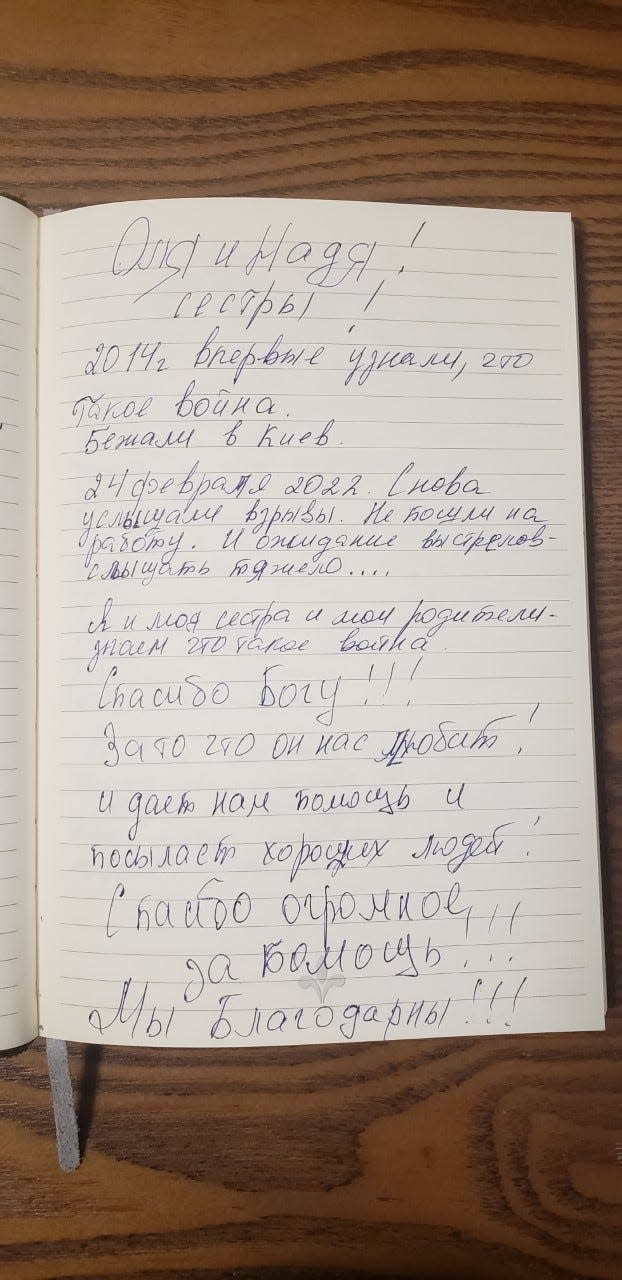 Оля и Надя!
сестры!
2014г впервые узнали, что
такое война.
Бежали в Киев.
24 февраля 2022. Снова
услышали взрывы. Не пошли на
работу. И ожидание выстрелов-
слышать тяжело....
Я и моя сестра и мои родители-
знаем что такое война.
Спасибо Богу!!!
За то что он нас любит!
и дает нам помощь и
посылает хороших людей!
Спасибо огромное
за помощь!!!
Мы Благодарны!!!